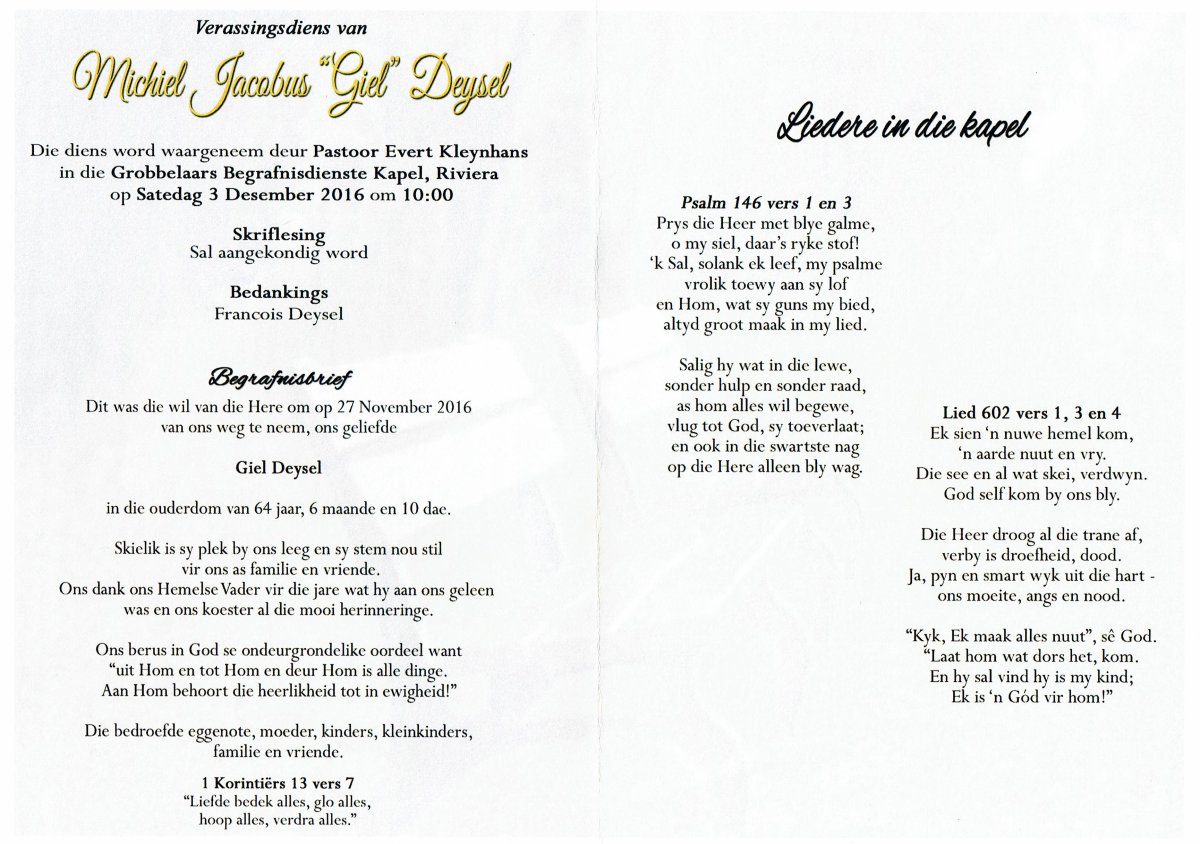 Verassingsdiens van
Michiel Jacobus “Giel” Deysel
Die diens word waargeneem deur Pastoor Evert Kleynhans
in die Grobbelaars Begrafnisdienste Kapel, Riviera
op Satedag 3 Desember 2016 om 10:00
Skriflesing
Sal aangekondig word
Bedankings
Francois Deysel
Begrafnisbrief
Dit was die wil van die Here om op 27 November 2016
van ons weg te neem, ons geliefde
Giel Deysel
in die ouderdom van 64 jaar, 6 maande en 10 dae.
Skielik is sy plek by ons leeg en sy stem nou stil
vir ons as familie en vriende.
Ons dank ons Hemelse Vader vir die jare wat hy aan ons geleen
was en ons koester al die mooi herinneringe.
Ons berus in God se ondeurgrondelike oordeel want
“uit Hom en tot Hom en deur Hom is alle dinge.
Aan Hom behoort die heerlikheid tot in ewigheid!”
Die bedroefde eggenote, moeder, kinders, kleinkinders,
familie en vriende.
1 Korintiërs 13 vers 7
“Liefde bedek alles, glo alles,
hoop alles, verdra alles.”
Liedere in die kapel
Psalm 146 vers 1 en 3
Prys die Heer met blye galme,
o my siel, daar’s ryke stof!
‘k Sal, solank ek leef, my psalme
vrolik toewy aan sy lof
en Hom, wat sy guns my bied,
altyd groot maak in my lied.
Salig hy wat in die lewe,
sonder hulp en sonder raad,
as hom alles wil begewe,
vlug tot God, sy toeverlaat;
en ook in die swartste nag
op die Here alleen bly wag.
Lied 602 vers 1, 3 en 4
Ek sien ‘n nuwe hemel kom,
‘n aarde nuut en vry.
Die see en al wat skei, verdwyn.
God self kom by ons bly.
Die Heer droog al die trane af,
verby is droefheid, dood.
Ja, pyn en smart wyk uit die hart -
ons moeite, angs en nood.
“Kyk, Ek maak alles nuut”, sê God.
“Laat hom wat dors het, kom.
En hy sal vind hy is my kind;
Ek is ‘n Gód vir hom!”